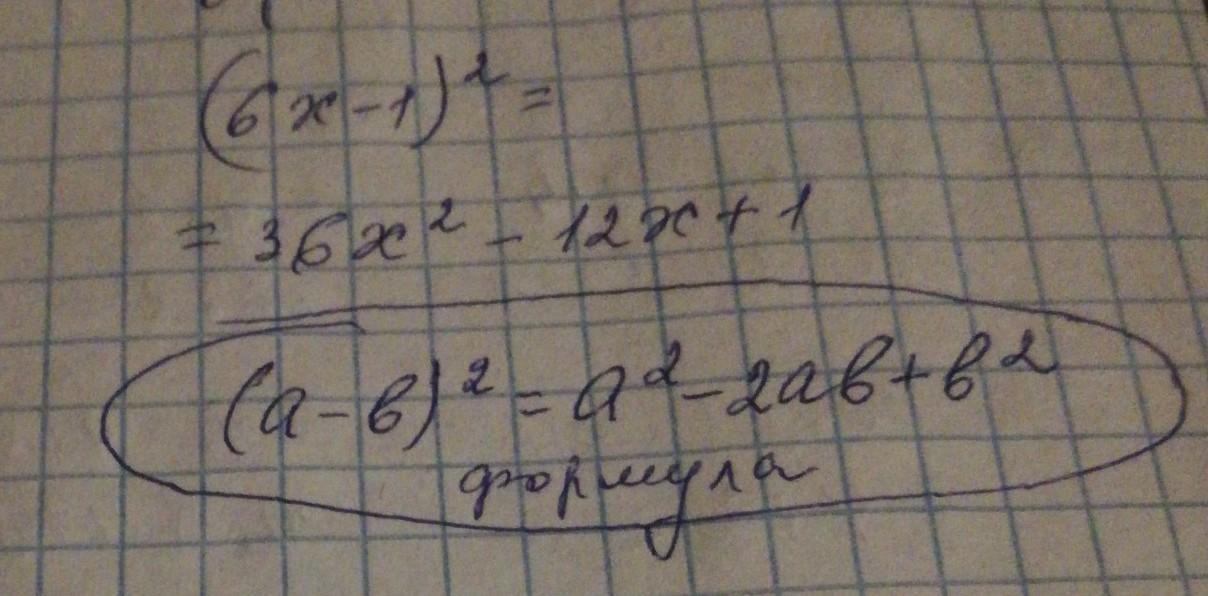 (6x-1)² =
= 36x² - 12x + 1
(a-в)² = a² - 2aв + в²
формула